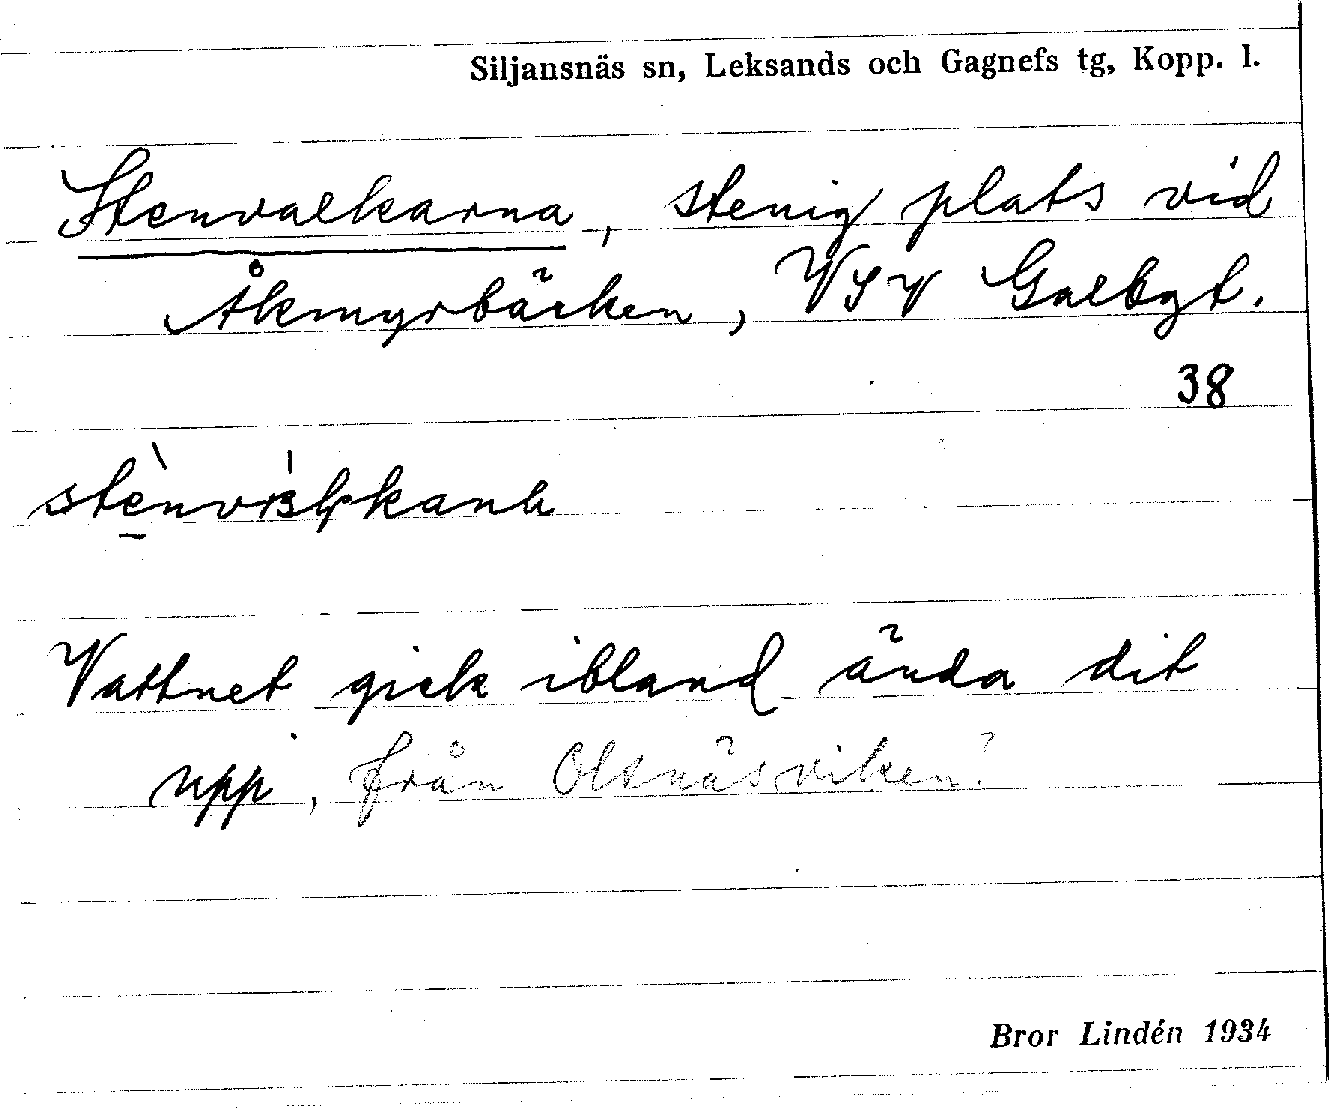 Siljansnäs sn, Leksands och Gagnefs tg, Kopp. l.
Stenvalkarna, stenig plats vid
Åkmyrbäcken, VSV
38
Vattnet gick ibland ända dit
upp, från Olsnäsviken?
Bror Lindén 1934